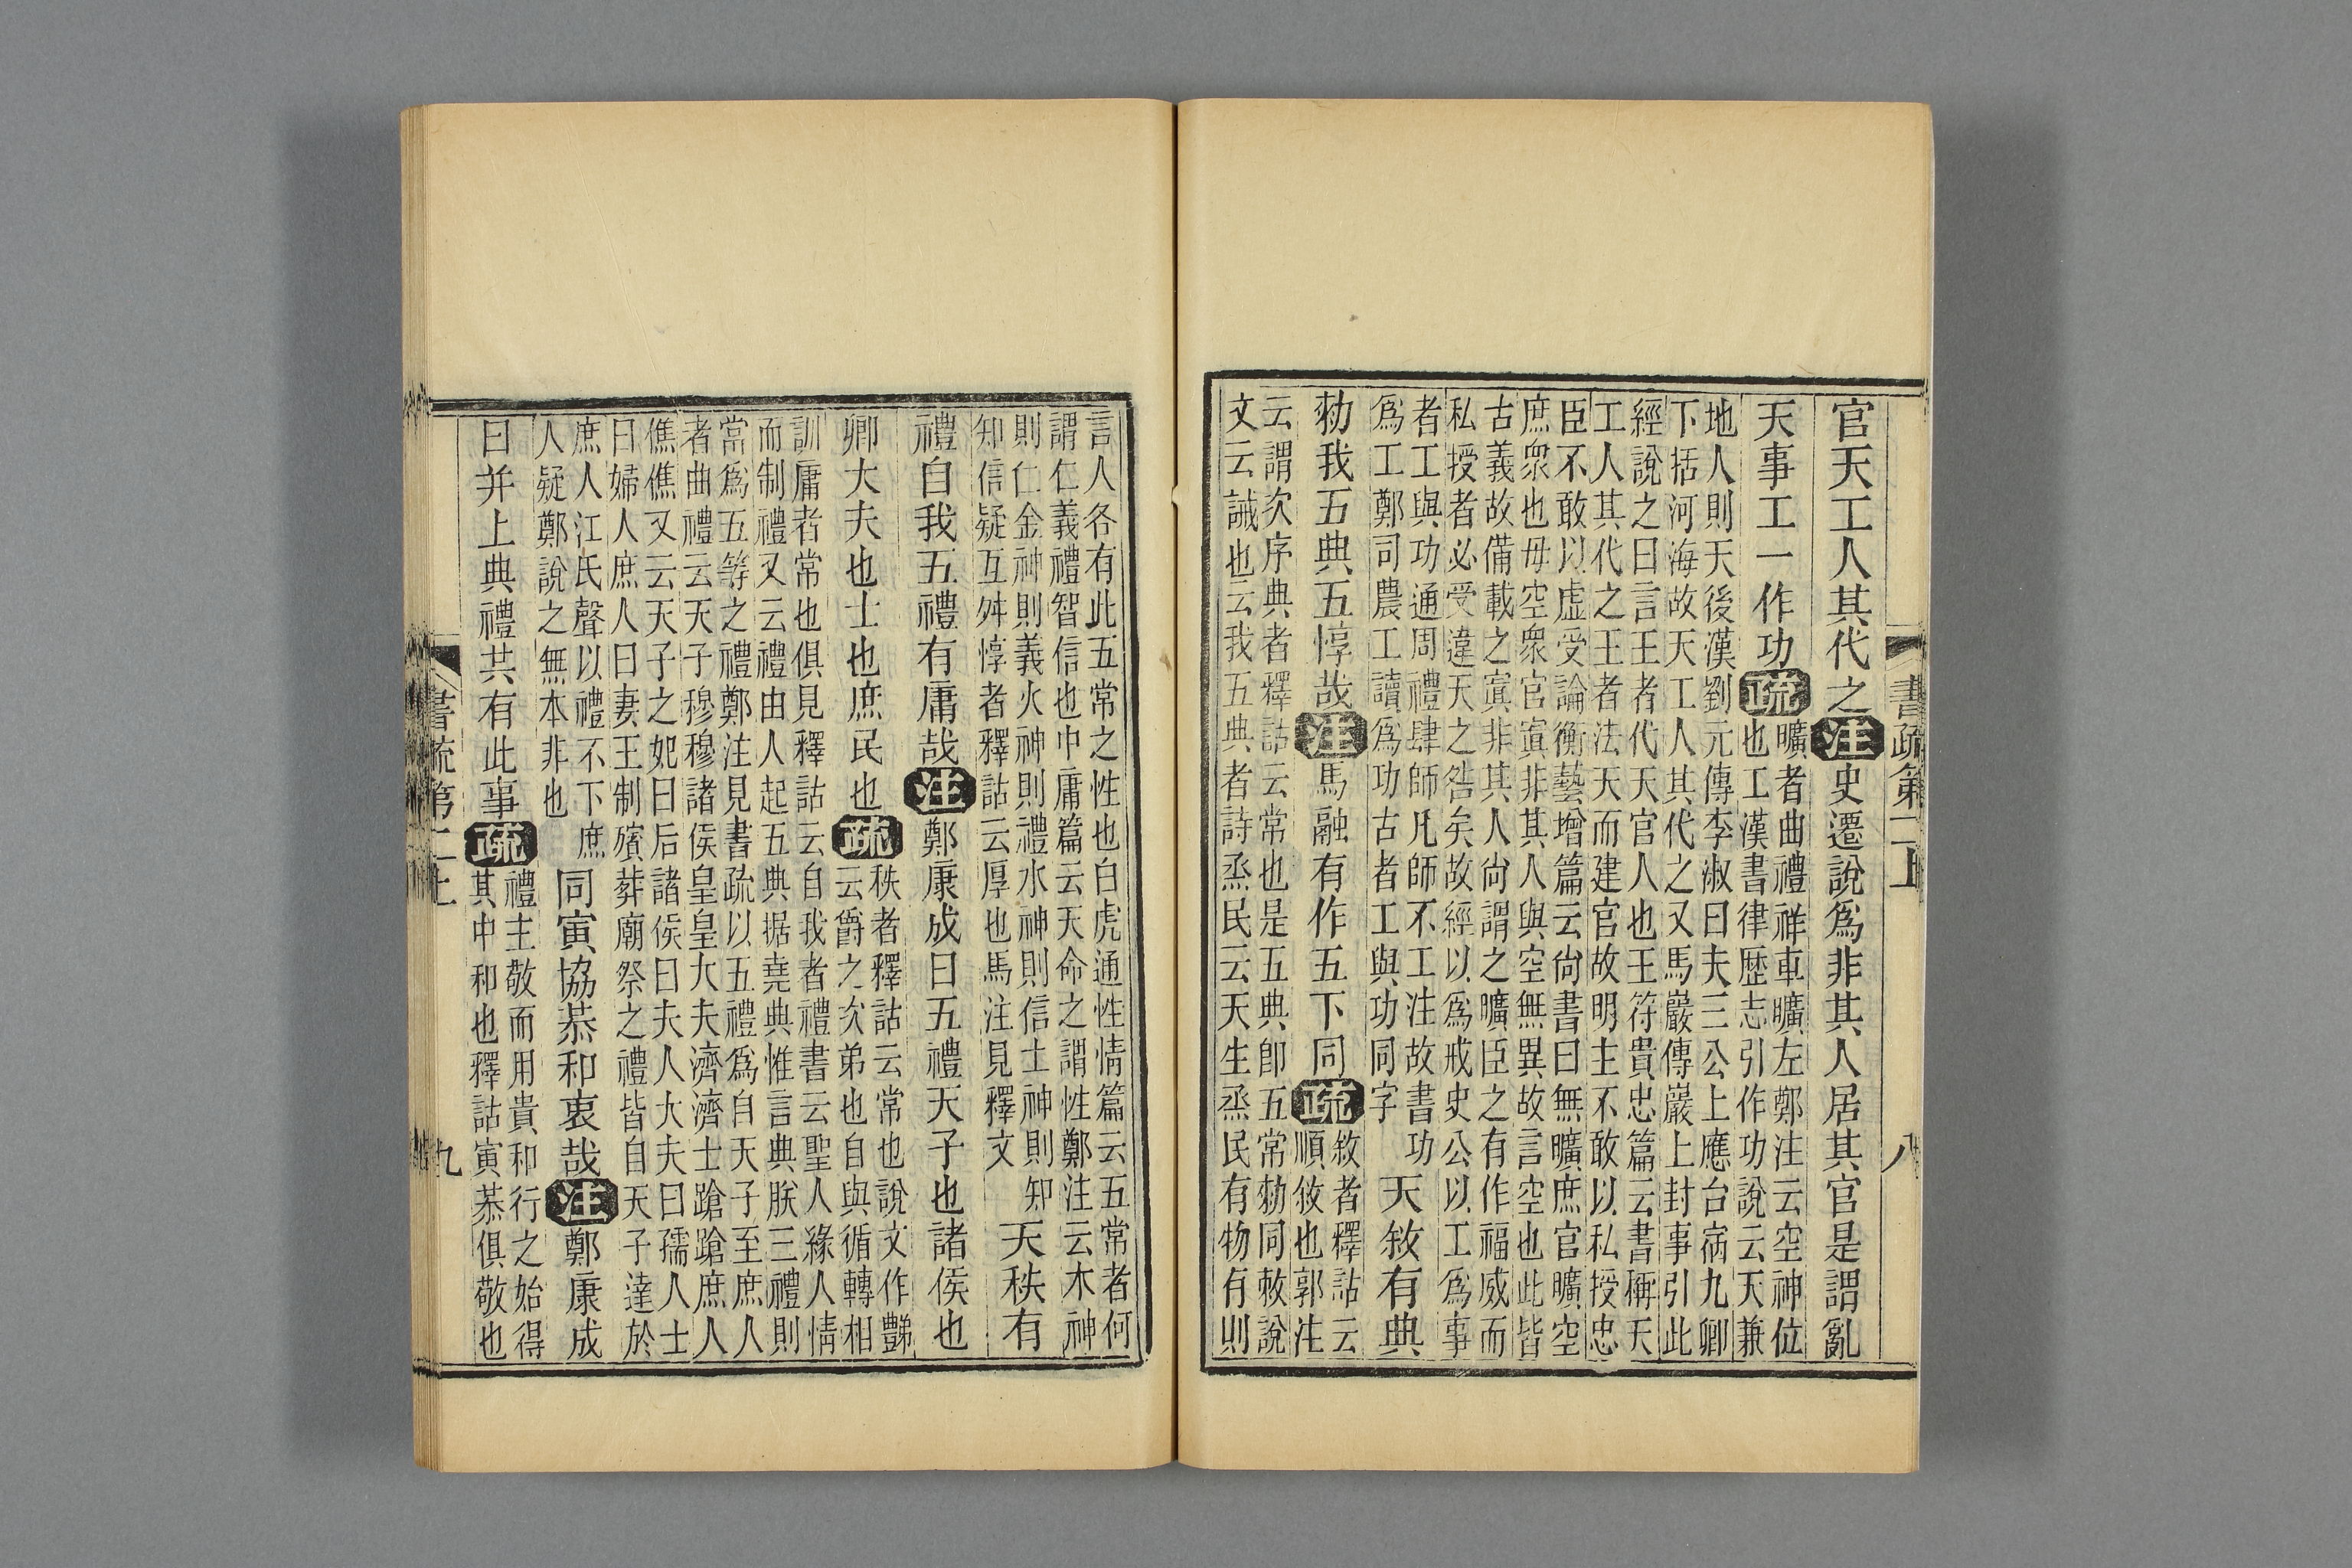 書疏第二上
八
官天工人其代之注史遷說爲非其人居其官是謂亂
天事工一作功疏曠者曲禮祥車曠左鄭注云空神位
也工漢書律歷志引作功說云天兼
地人則天後漢劉元傳李淑曰夫三公上應台宿九卿
下括河海故天工人其代之又馬嚴傳嚴上封事引此
經說之曰言王者代天官人也王符貴忠篇云書稱天
工人其代之王者法天而建官故明主不敢以私授忠
臣不敢以虛受論衡藝增篇云尙書曰無曠庶官曠空
庶衆也毋空衆官寘非其人與空無異故言空也此皆
古義故備載之寘非其人尙謂之曠臣之有作福威而
私授者必受違天之咎矣故經以爲戒史公以工爲事
者工與功通周禮肆師凡師不工注故書功
爲工鄭司農工讀爲功古者工與功同字
天敘有典
勑我五典五惇哉注馬融有作五下同疏敘者釋詁云
順敘也郭注
云謂次序典者釋詁云常也是五典卽五常勑同敕說
文云誡也云我五典者詩烝民云天生烝民有物有則
言人各有此五常之性也白虎通性情篇云五常者何
謂仁義禮智信也中庸篇云天命之謂性鄭注云木神
則仁金神則義火神則禮水神則信土神則知
知信疑互舛惇者釋詁云厚也馬注見釋文
天秩有
禮自我五禮有庸哉注鄭康成曰五禮天子也諸侯也
卿大夫也士也庶民也疏秩者釋詁云常也說文作豑
云爵之次弟也自與循轉相
訓庸者常也俱見釋詁云自我者禮書云聖人緣人情
而制禮又云禮由人起五典据堯典惟言典朕三禮則
常爲五等之禮鄭注見書疏以五禮爲自天子至庶人
者曲禮云天子穆穆諸侯皇皇大夫濟濟士蹌蹌庶人
僬僬又云天子之妃曰后諸侯曰夫人大夫曰孺人士
曰婦人庶人曰妻王制殯葬廟祭之禮皆自天子達於
庶人江氏聲以禮不下庶
人疑鄭說之無本非也
同寅協恭和衷哉注鄭康成
曰并上典禮共有此事疏禮主敬而用貴和行之始得
其中和也釋詁寅恭俱敬也
書疏第二上
九